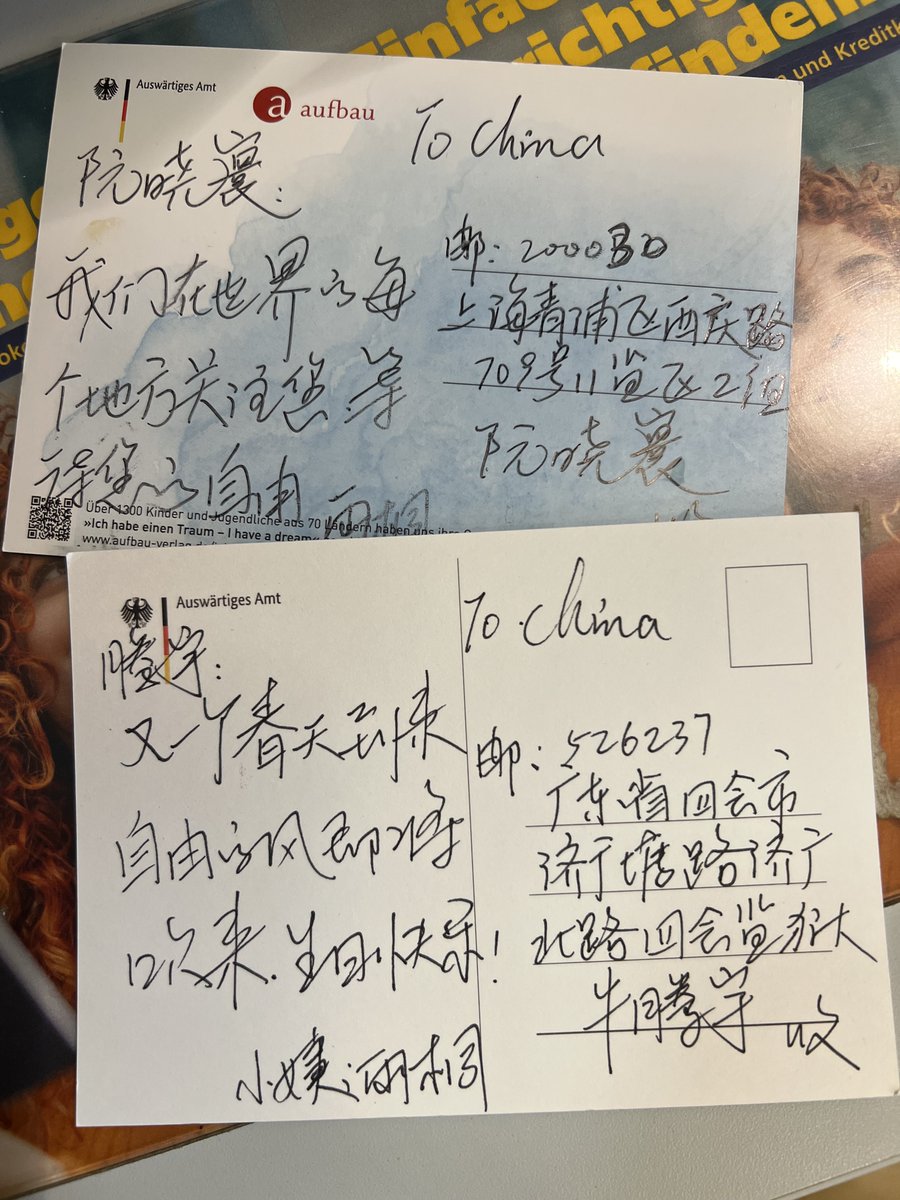 Einfac
richtige
finden
n und Kreditk
Auswärtiges Amt
a aufbau
To China
阮晓寰:
我们在世界的每
个地方关注您.等
待您的自由
雨桐
邮:200030
上海青浦区西庆路
709号11监区2组
阮晓寰
Über 1300 Kinder und Jugendliche aus 70 Ländern haben uns ihre
»Ich habe einen Traum – I have a dream«
www.aufbau-verlag.de/
Auswärtiges Amt
To China
腾宇:
又一个春天到来
自由的风即将
吹来.生日快乐!
小婕.雨桐
邮:526237
广东省四会市
济广塘路济广
北路四会监狱
牛腾宇 收